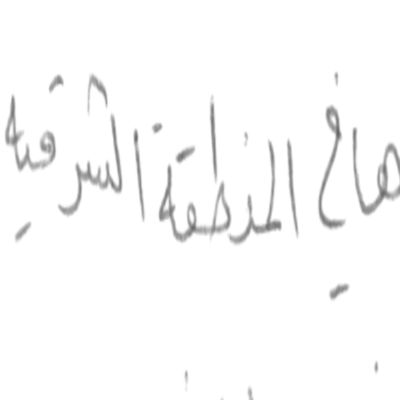 ها في المنطقة الشرقيه